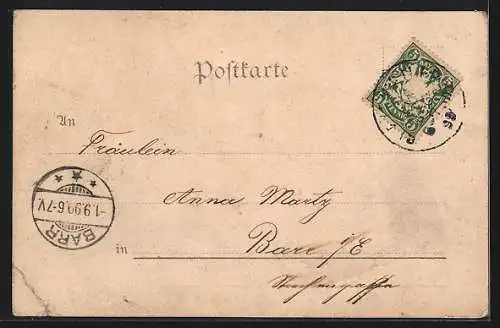 Postkarte
An
Fräulein
Anna Martz
in Barr i/E
BARR
-1.9.99.6-7V.
5